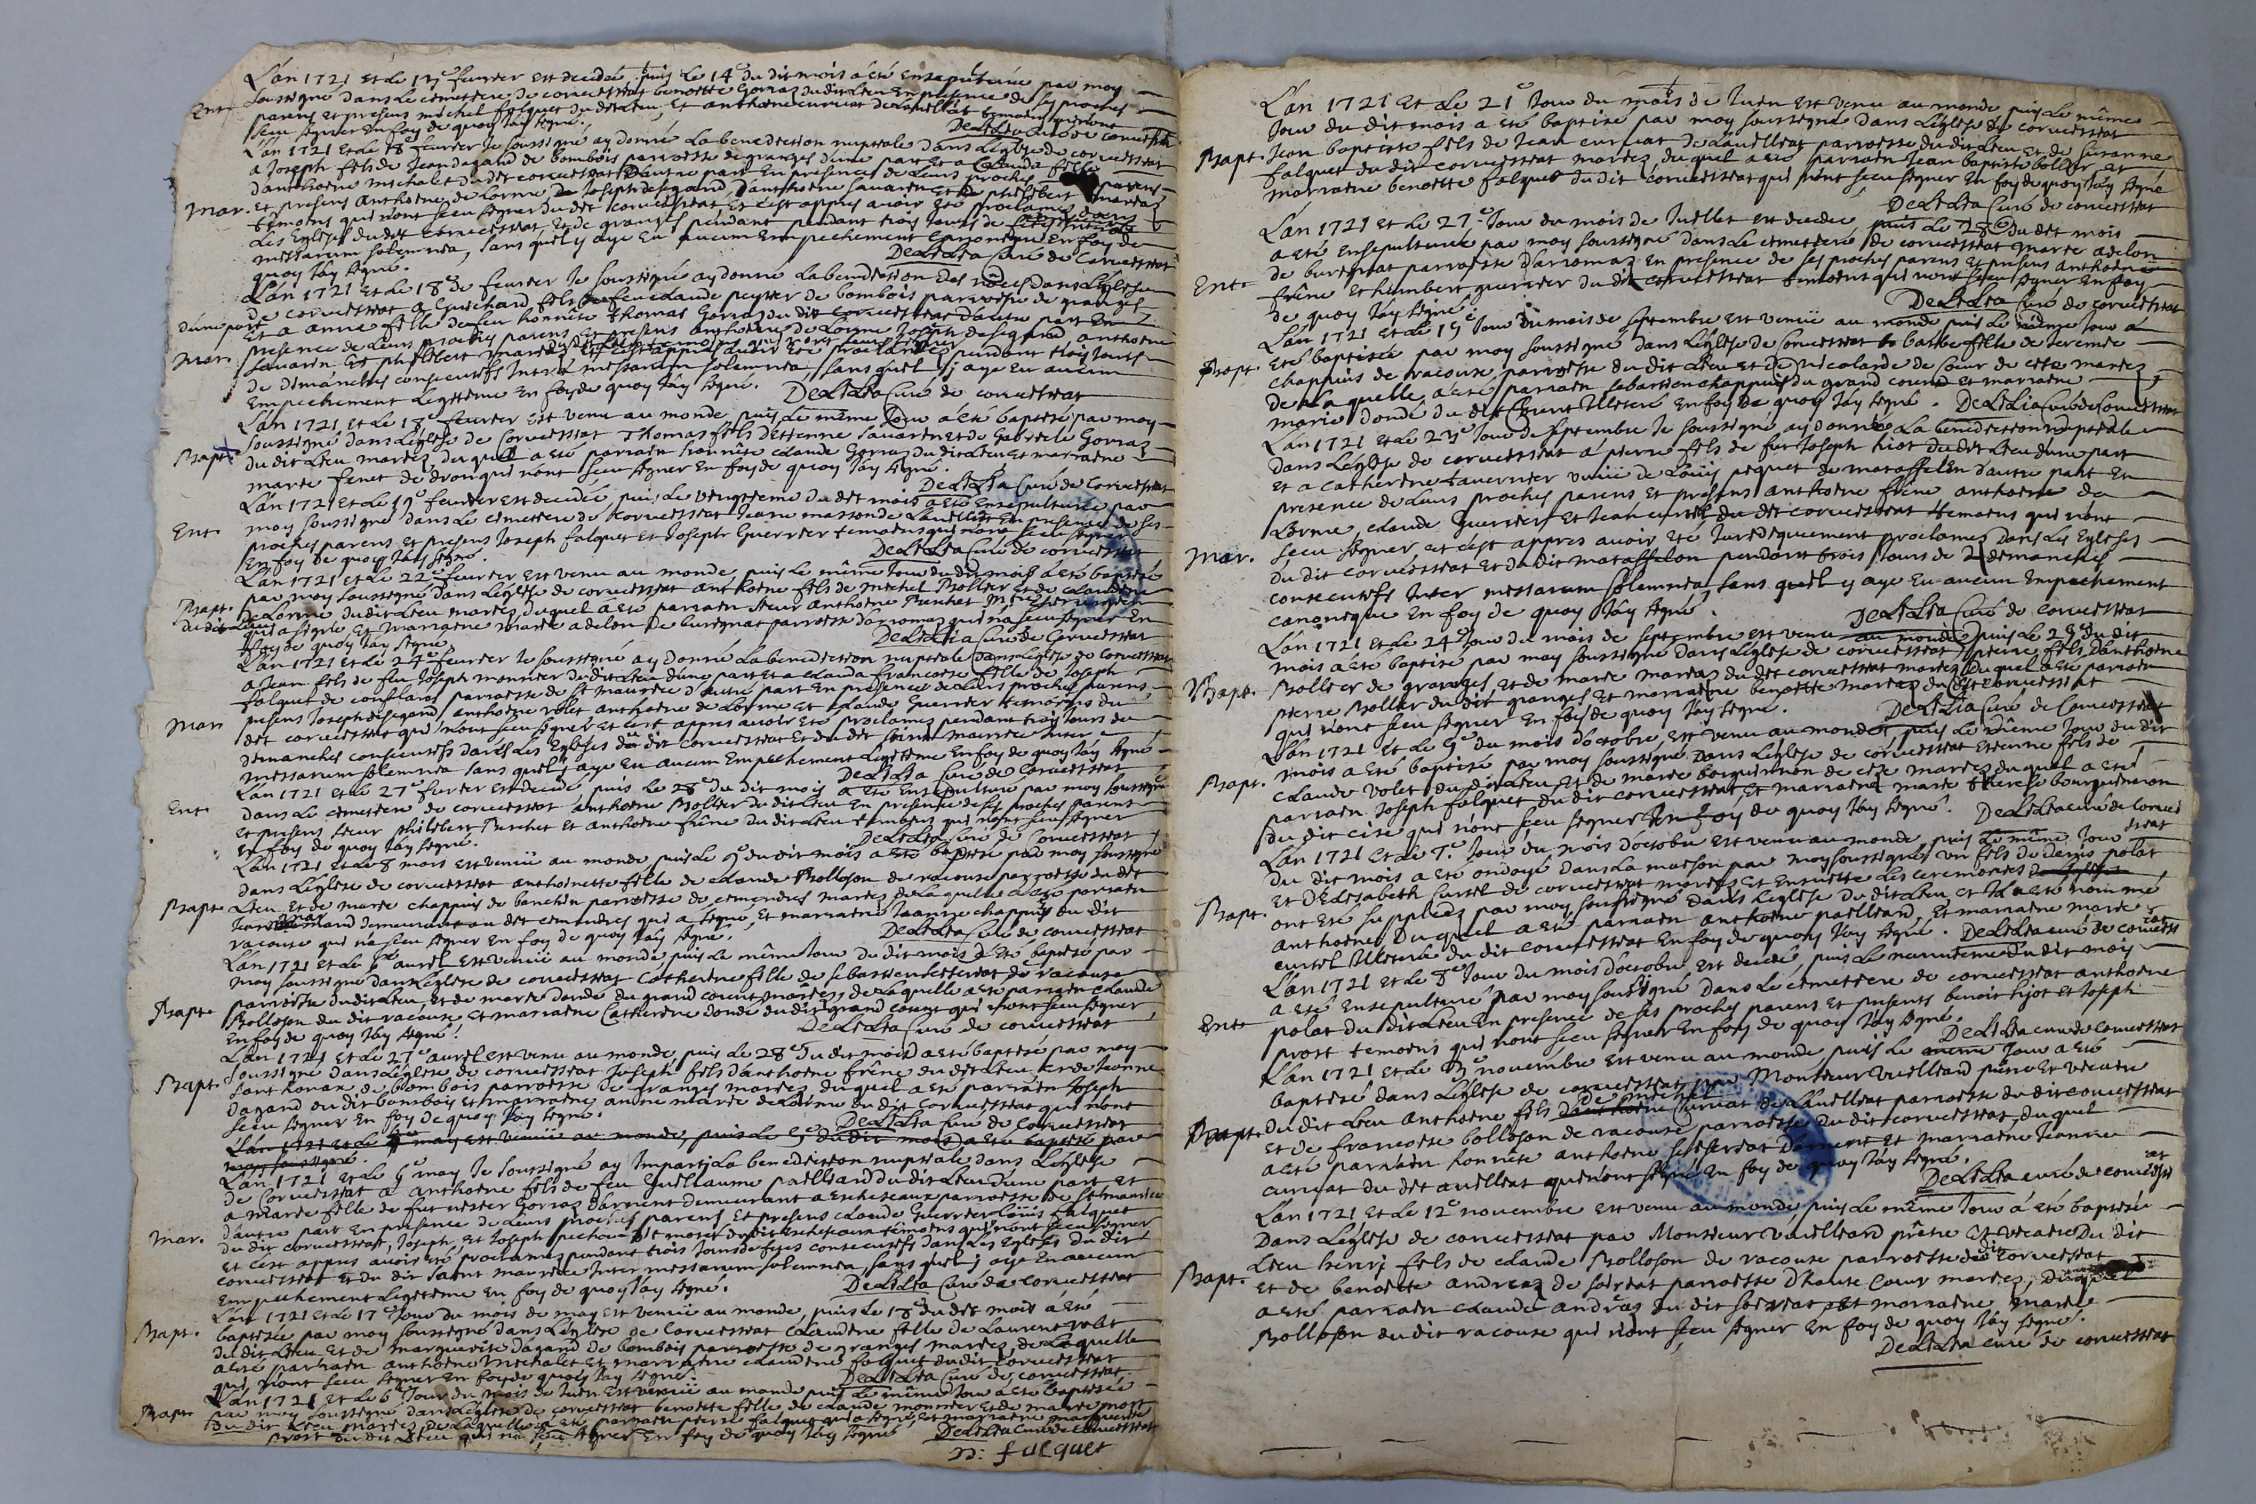 L'an 1721 et le 13e feuvrier est decidée puis le 14e du dit mois a été ensepulturée par moy
Ent. soussigné dans le cemetiere de corveissiat benoitte Gorraz du dit Lieu en presence de ses proches
parens et presens michel falquet du dit Lieu, et anthoine curvat de Lavelliat temoins qui n'ont
sceu signer en foy de quoy j'ay signé. DeLiLia curé de corveissiat
L'an 1721 et le 18e feuvrier je soussigné ay donné La benediction nuptiale dans L'église de corveissiat
a Joseph fils de Jean dagand de bombois parroisse de granges d'une part et a Claude fille
d'anthoine michalet du dit corveissiat d'autre part en presences de Leurs proches parens
mar. et presens anthoine de Lorme, Joseph desigand, anthoine savarin et philibert mareaz
temoins qui n'ont sceu signer du dit corveissiat et c'est apres avoir été proclamez dans
Les Eglises du dit corveissiat, et de granges pendant trois jours de
messarum solemnia, sans quil y aye eu aucun empechement canonique en foy de
quoy j'ay signé. DeLiLia curé de Corveissiat
L'an 1721 et le 18e de feuvrier je soussigné ay donné La benediction des nôces dans L'église
de corveissiat a Guichard fils de feu claude peysier de bombois parroisse de granges
d'une part et a anne fille de feu honnête Thomas Gorraz du dit corveissiat d'autre part en
mar. presence de Leurs proches parens, et presens anthoine de Lorme, Joseph desigand, anthoine
savarin et philibert mareaz du dit Lieu temoins qui n'ont sceu signer et c'est apres avoir été proclamez pendant trois jours
de dimanches consecutifs inter messarum solemnia, sans quil y aye eu aucun
empechement Legitime en foy de quoy j'ay signé. DeLiLia Curé de corveissiat
L'an 1721 et le 18e feuvrier est venu au monde puis Le même Jour a été baptisé par moy
soussigné dans L'église de Corveissiat Thomas fils d'Etienne savarin et de Gabrielle Gorraz
Bapt. du dit Lieu mariez, du quel a été parrain honnête claude Gorraz du dit Lieu et marraine
marie fenet de dron qui n'ont sceu signer en foy de quoy j'ay signé.
DeLiLia Curé de Corveissiat
L'an 1721 et le 19e feuvrier est decidée, puis Le vingtieme du dit mois a été ensepulturée par
moy soussigné dans Le cemetiere de Corveissiat Jeane masson de Lavelliat en presence de ses
Ent. proches parens et presens Joseph falquet et Joseph Guerrier temoins qui n'ont sceu signer
en foy de quoy j'ay signé. DeLiLia Curé de corveissiat
L'an 1721 et le 22e feuvrier est venu au monde, puis Le même Jour du dit mois a été baptisé
par moy soussigné dans L'église de corveissiat anthoine fils de michel Bollier et de claudine
Bapt. DeLorme du dit Lieu mariez duquel a été parrain sieur anthoine
du dit Lieu qui a signé, et marraine marie adelon de burignat parroisse d'arromaz qui n'a sceu signer En
foy de quoy j'ay signé. DeLiLia Curé de Corveissiat
L'an 1721 et le 24e feuvrier je soussigné ay donné La benediction nuptiale dans L'eglise de corveissiat
a Jean fils de feu Joseph monnier du dit Lieu d'une part et a claude francoise fille de Joseph
falquet de conflans parroisse de St maurice d'autre part en presence de Leurs proches parens,
mar. presens Joseph desigand, anthoine volet anthoine de Lorme et claude Guerrier temoins du
dit corveissiat qui n'ont sceu signer et c'est apres avoir été proclamez pendant trois jours de
dimanches consecutifs dans Les Eglises du dit corveissiat et du dit saint maurice inter
messarum solemnia sans quil y aye eu aucun Empechement Legitime en foy de quoy j'ay signé
DeLiLia Curé de Corveissiat
L'an 1721 et le 27e feuvrier est decidé puis le 28e du dit mois a été ensepulturé par moy soussigné
Ent. dans Le cemetiere de corveissiat anthoine Bollier du dit Lieu en presence de ses proches parens
et presens sieur philibert Burchet et anthoine frêne du dit Lieu temoins qui n'ont sceu signer
en foy de quoy j'ay signé. DeLiLia Curé de Corveissiat
L'an 1721 et le 8 mars est venüe au monde puis Le 9e du dit mois a été baptisée par moy soussigné
dans L'église de corveissiat anthoinette fille de claude Bolloson de racouse parroisse du dit
Bapt. Lieu et de marie chappuis de banchin parroisse de cimendres mariez de La quelle a été parrain
qui a signé, et marraine Jeanne chappuis du dit
racouse qui n'a sceu signer en foy de quoy j'ay signé. DeLiLia Curé de corveissiat
L'an 1721 et le avril est venüe au monde puis le même Jour du dit mois a été baptisée par
moy soussigné dans L'eglise de corveissiat Catherine fille de sebastien de racouse
parroisse du dit Lieu, et de marie dondé du grand courent mariez, de Laquelle a été parrain claude
Bapt. Bolloson du dit racouse et marraine Catherine dondé du dit grand courent qui n'ont sceu signer
en foy de quoy j'ay signé. DeLiLia Curé de corveissiat
L'an 1721 et le 27e avril est venu au monde, puis Le 28e du dit mois a été baptisé par moy
Bapt. soussigné dans L'eglise de corveissiat Joseph fils d'anthoine frêne du dit Lieu, et de Jeanne
de bombois parroisse de granges mariez, du quel a été parrain Joseph
dagand du dit bombois et marraine anne marie deLorme du dit corveissiat qui n'ont
sceu signer en foy de quoy j'ay signé. DeLiLia Curé de Corveissiat
L'an 1721 et le may est venüe au monde, puis Le 9e du dit mois a été baptisé par
moy soussigné.
L'an 1721 et le 9e may Je soussigné ay imparti La benediction nuptiale dans L'église
de Corveissiat a anthoine fils de feu Guillaume pailliard du dit Lieu d'une part et
a marie fille de feu Gorraz d'arnent demeurant a Eschiseaux parroisse de St maurice
d'autre part en presence de Leurs proches parens, et presens claude Guerrier Loüis falquet
mar. du dit corveissiat, Joseph, et Joseph du dit Eschiseaux temoins qui n'ont sceu signer
et c'est apres avoir été proclamez pendant trois jours de fêtes consecutifs dans Les Eglises du dit
corveissiat et du dit saint maurice inter messarum solemnia, sans quil y aye eu aucun
empechement Legitime en foy de quoy j'ay signé. DeLiLia Curé de corveissiat
L'an 1721 et le 17e Jour du mois de may est venüe au monde, puis Le 18e du dit mois a été
Bapt. baptisée par moy soussigné dans L'eglise de Corveissiat Claudine fille de Laurent volet
du dit Lieu et de marguerite dagand de bombois parroisse de granges mariez, de Laquelle
a été parrain anthoine michalet et marraine claudine falquet du dit corveissiat
qui n'ont sceu signer en foy de quoy j'ay signé. DeLiLia Curé de corveissiat
L'an 1721 et le 6e Jour du mois de Juin est venüe au monde puis Le même Jour a été baptisée
Bapt. par moy soussigné dans L'église de corveissiat benoitte fille de claude monnier et de marie prost
du dit Lieu mariez, de Laquelle a été parrain pierre falquet qui a signé et marraine marguerite
prost du dit Lieu qui n'a sceu signer en foy de quoy j'ay signé DeLiLia Curé de corveissiat
p: falquet
L'an 1721 et Le 21e Jour du mois de Juin est venu au monde puis Le même
Jour du dit mois a été baptisé par moy soussigné dans L'église de corveissiat
Bapt. Jean baptiste fils de Jean curvat de Lavelliat parroisse du dit Lieu et de suzanne
falquet du dit corveissiat mariez, du quel a été parrain Jean baptiste bollier et
marraine benoitte falquet du dit corveissiat qui n'ont sceu signer en foy de quoy j'ay signé
DeLiLia Curé de corveissiat
L'an 1721 et le 27e Jour du mois de Juillet est decidée puis Le 28e du dit mois
a été ensepulturée par moy soussigné dans Le cemetiere de corveissiat marie adelon
de burignat parroisse d'arromaz en presence de ses proches parens et presens anthoine
Ent. frêne et humbert guerrier du dit corveissiat temoins qui n'ont sceu signer en foy
de quoy j'ay signé. DeLiLia Curé de corveissiat
L'an 1721 et le 19e Jour du mois de septembre est venüe au monde puis Le même Jour a
Bapt. été baptisée par moy soussigné dans L'eglise de Corveissiat barbe fille de Jeremie
chappuis de racouse parroisse du dit Lieu et de nicolarde de Coeur de cize mariez
de La quelle a été parrain sebastien chappuis du grand courent et marraine
marie dondé du dit Courent illeteré en foy de quoy j'ay signé. DeLiLia Curé de Corveissiat
L'an 1721 et le 23e Jour de septembre Je soussigné ay donné La benediction nuptiale
dans L'église de corveissiat a pierre fils de feu Joseph hiot du dit Lieu d'une part
et a Catherine tavernier veuve de Loüis pequet de mataffelon d'autre part en
presence de Leurs proches parens et presens anthoine frêne anthoine de
Lorme, claude Guerrier, et Jean curtil du dit corveissiat temoins qui n'ont
mar. sceu signer et c'est appres avoir été Juridiquement proclamez dans Les Eglises
du dit corveissiat et du dit mataffelon pendant trois jours de dimanches
consecutifs inter messarum solemnia, sans quil y aye eu aucun Empechement
canonique en foy de quoy j'ay signé. DeLiLia Curé de corveissiat
L'an 1721 et Le 24e Jour du mois de septembre est venu au monde, puis Le 25e du dit
mois a été baptisé par moy soussigné dans L'église de corveissiat pierre fils d'anthoine
Bapt. Bollier de granges et de marie mareaz du dit corveissiat mariez, du quel a été parrain
pierre Bollier du dit granges et marraine benoitte mareaz du dit corveissiat
qui n'ont sceu signer en foy de quoy j'ay signé. DeLiLia Curé de Corveissiat
L'an 1721 et Le 5e du mois d'octobre est venu au monde, puis Le même Jour du dit
mois a été baptisé par moy soussigné dans L'église de corveissiat etienne fils de
Bapt. claude volet du dit Lieu et de marie borguinnon de cize mariez, du quel a été
parrain Joseph falquet du dit corveissiat, et marraine marie therese bourguinnon
du dit cize qui n'ont sceu signer En foy de quoy j'ay signé. DeLiLia curé de Corveissiat
L'an 1721 et Le 7e Jour du mois d'octobre est venu au monde, puis Le même Jour
du dit mois a été ondoyé dans La maison par moy soussigné un fils de denis polat
et d'Elisabeth Curtil de corveissiat mariez, et ensuitte Les ceremonies
Bapt. ont été suppliées par moy soussigné dans L'église du dit Lieu et il a été nommé
anthoine, du quel a été parrain anthoine pailliard, et marraine marie
curtil illeteré du dit corveissiat En foy de quoy j'ay signé. DeLiLia curé de corveissiat
L'an 1721 et Le 8e Jour du mois d'octobre est decidé, puis Le neuvieme du dit mois
a été ensepulturé par moy soussigné dans Le cemetiere de corveissiat anthoine
Ent. polat du dit Lieu en presence de ses proches parens et presents benoit hyot et Joseph
prost temoins qui n'ont sceu signer en foy de quoy j'ay signé.
DeLiLia curé de Corveissiat
L'an 1721 et Le novembre est venu au monde puis Le même Jour a été
baptisé dans L'église de corveissiat par Monsieur vuilliard prêtre et vicaire
Bapt. du dit Lieu anthoine fils de michel curvat de Lavelliat parroisse du dit corveissiat
et de francoise bolloson de racouse parroisse du dit corveissiat, duquel
a été parrain honnête anthoine d'arnent et marraine Jeanne
curvat du dit avelliat qui n'ont signé en foy de quoy j'ay signé.
DeLiLia curé de corveissiat
L'an 1721 et Le 12e novembre est venu au monde, puis Le même Jour a été baptisé
dans L'église de corveissiat par Monsieur vuilliard prêtre et vicaire du dit
Lieu henri fils de claude Bolloson de racouse parroisse du dit corveissiat
Bapt. et de benoitte andreaz de soiriat parroisse d'haute Cour mariez, duquel
a été parrain claude andreaz du dit soiriat et marraine marie
Bolloson du dit racouse qui n'ont sceu signer en foy de quoy j'ay signé.
DeLiLia curé de corveissiat